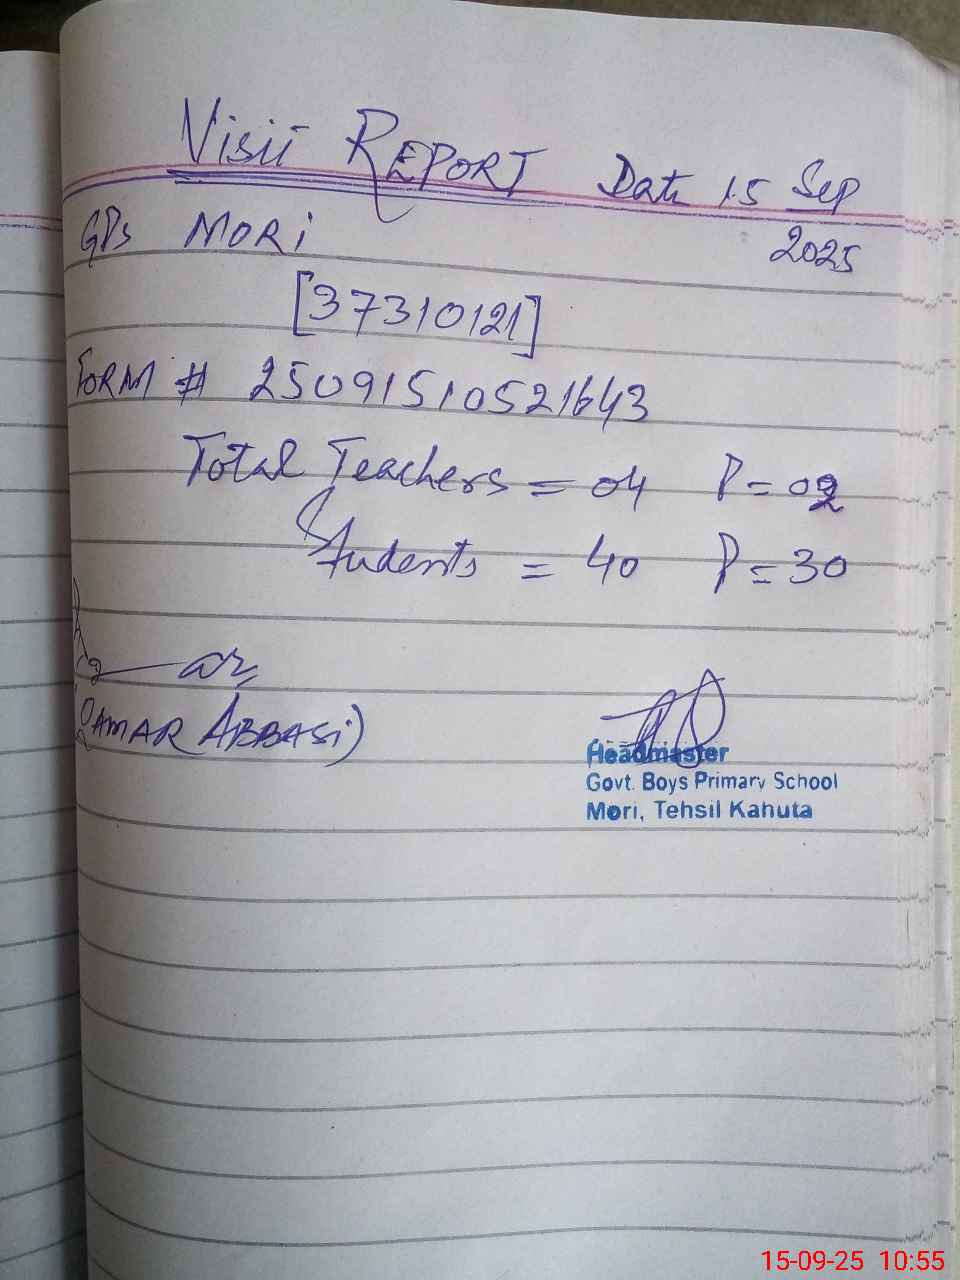 Visit REPORT Date 15 Sep
2025
GPs MORi
[37310121]
FORM # 25091510521643
Total Teachers = 04 P = 02
Students = 40 P = 30
(QAMAR ABBASi)
Headmaster
Govt. Boys Primary School
Mori, Tehsil Kahuta
15-09-25 10:55